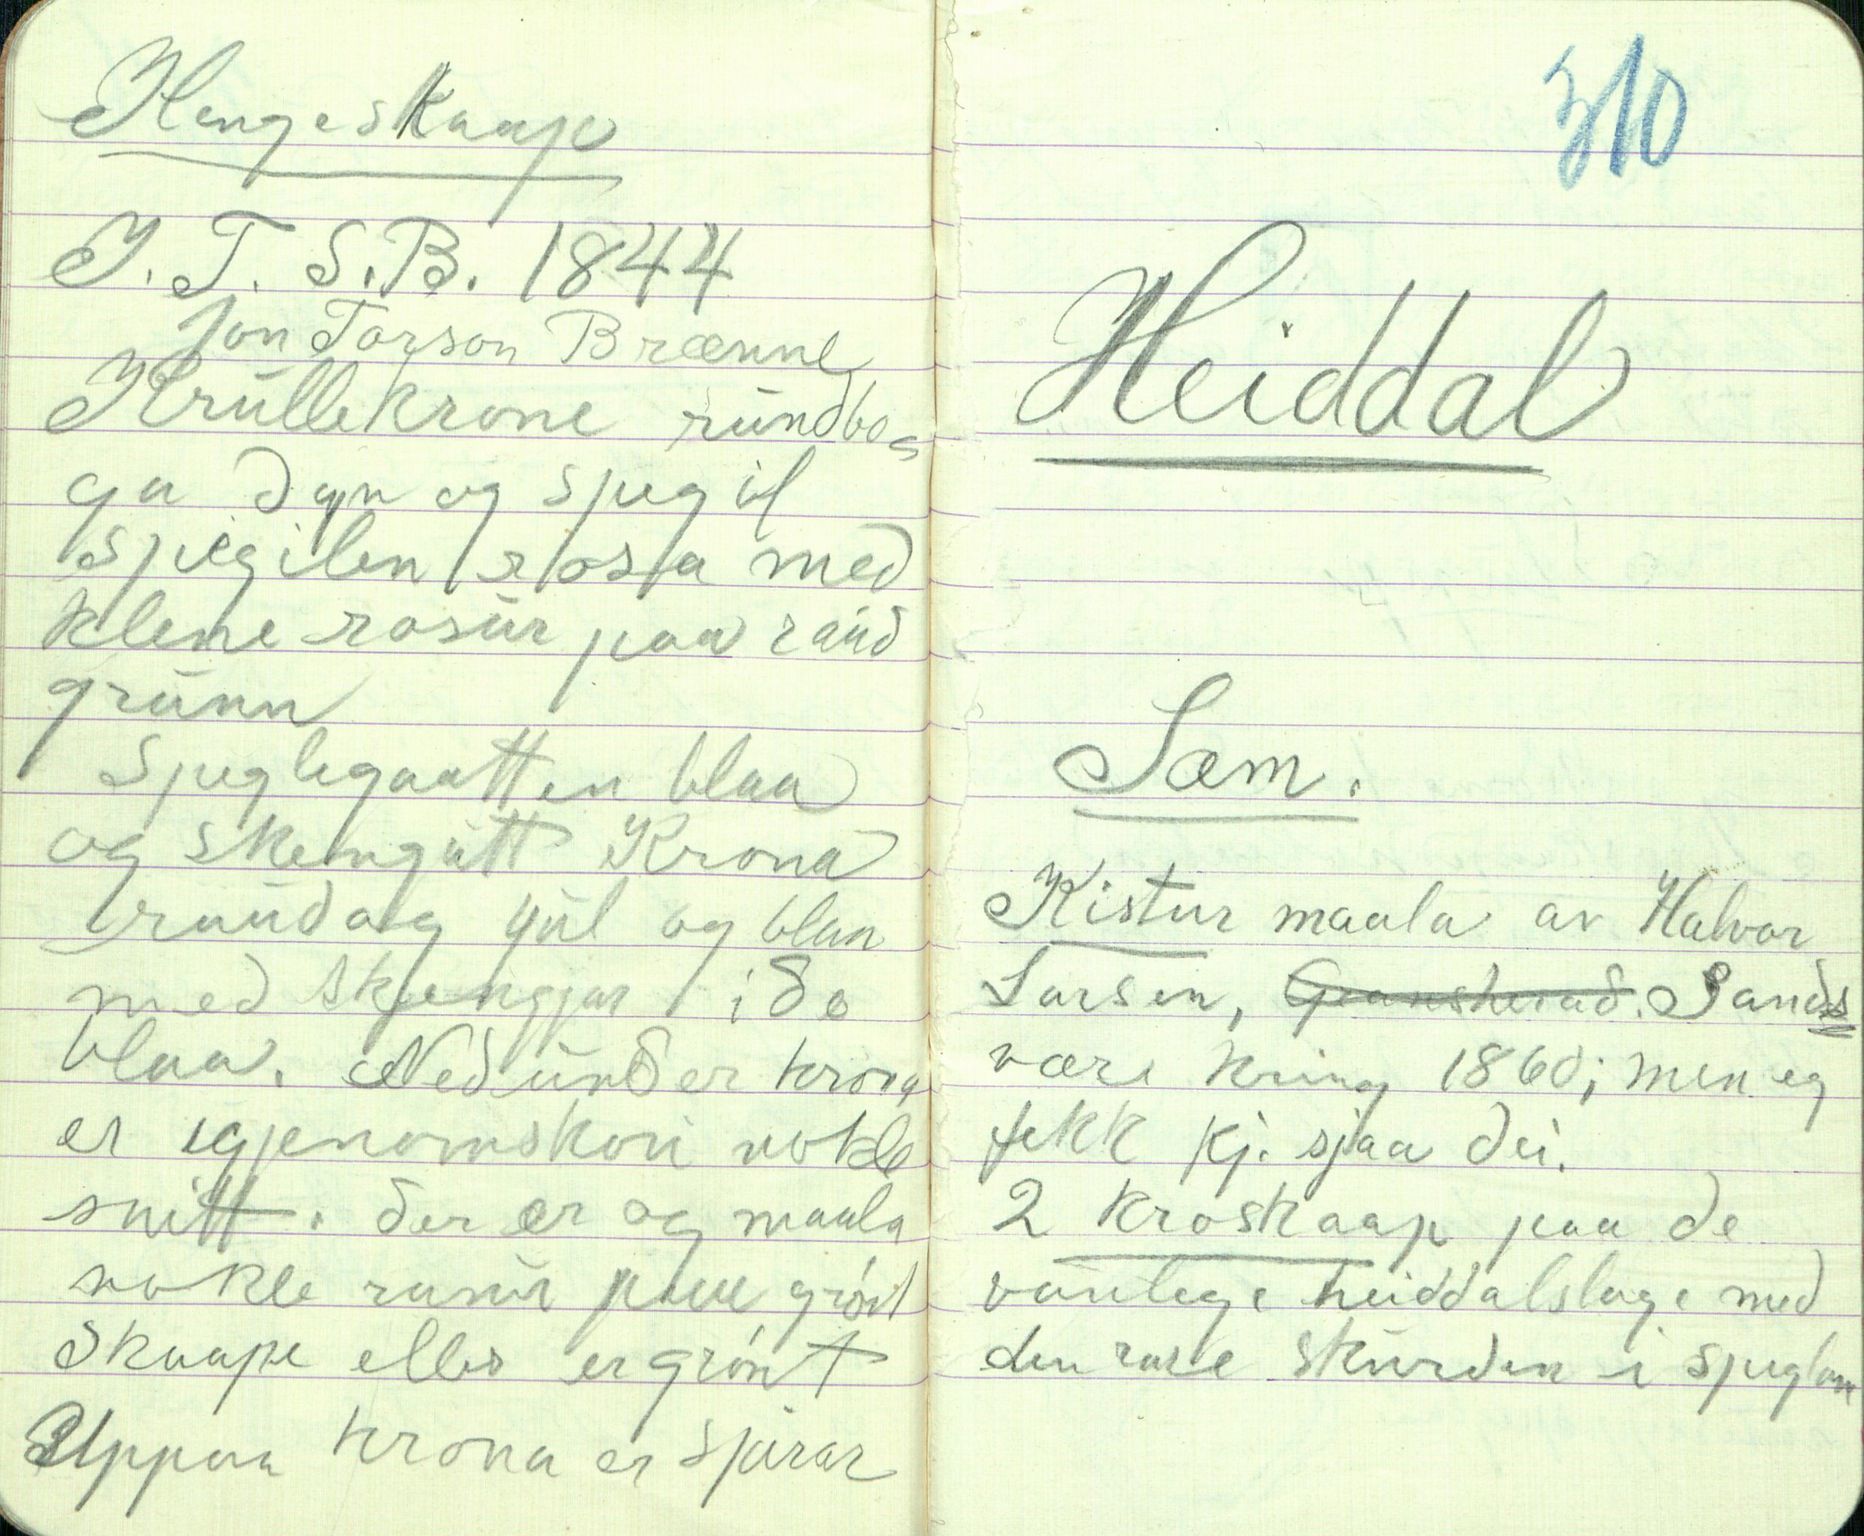 Hengeskaap
J. T. S. B. 1844
Jon Torson Brænne
Krullekrone rundbo-
ga dyn og spegil
spiegilen rosa med
klene rosur paa raud
grunn
Speglegaatten blaa
og skemgutt Krona
raud og gul og blaa
med skjenggjar i de
blaa. Nedunder krona
er igjenomskori nokle
snitt. der er og maala
nokle rusur paa grøn
Skaape elles er grønt
Uppaa krona er spirar
310
Heiddal
Sem.
Kistur maala av Halvor
Larsen, Gransherad. Sands
være kring 1860; men eg
fekk kj. sjaa dei.
2 kroskaap paa de
vanlege heiddalslage med
den rare skurden i speglan